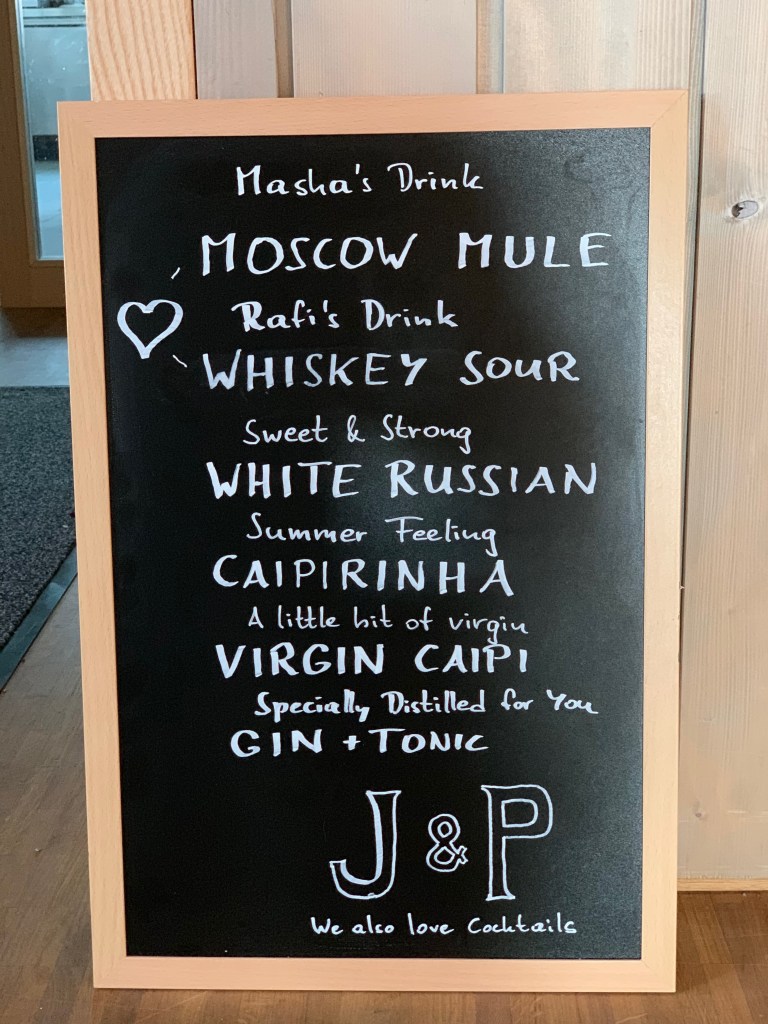 Masha's Drink
MOSCOW MULE
Rafi's Drink
WHISKEY SOUR
Sweet & Strong
WHITE RUSSIAN
Summer Feeling
CAIPIRINHA
A little bit of virgin
VIRGIN CAIPI
Specially Distilled for You
GIN + TONIC
J & P
We also love Cocktails